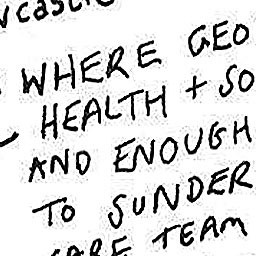 wcastle
WHERE GEO
HEALTH + SO
AND ENOUGH
TO SUNDER
CARE TEAM